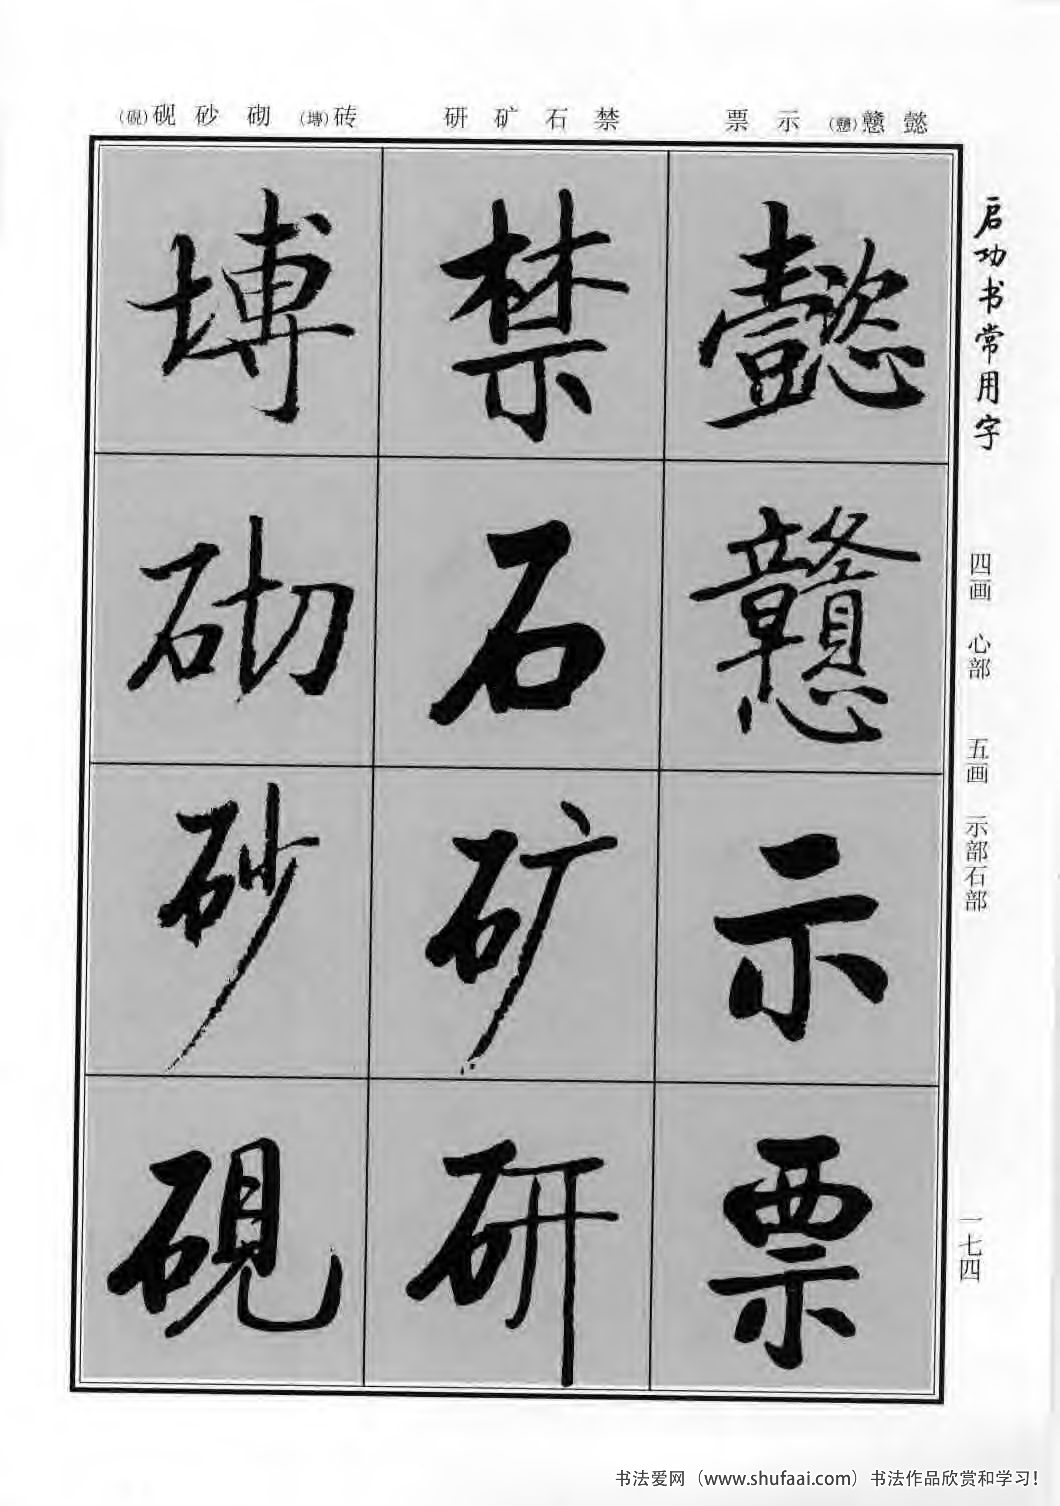 启功书常用字
四画 心部 五画 示部石部
一七四
懿 戆(戇) 示 票
禁 石 矿 研
砖(塼) 砌 砂 砚(硯)
懿
戇
示
票
禁
石
矿
研
塼
砌
砂
硯
书法爱网（www.shufaai.com）书法作品欣赏和学习!